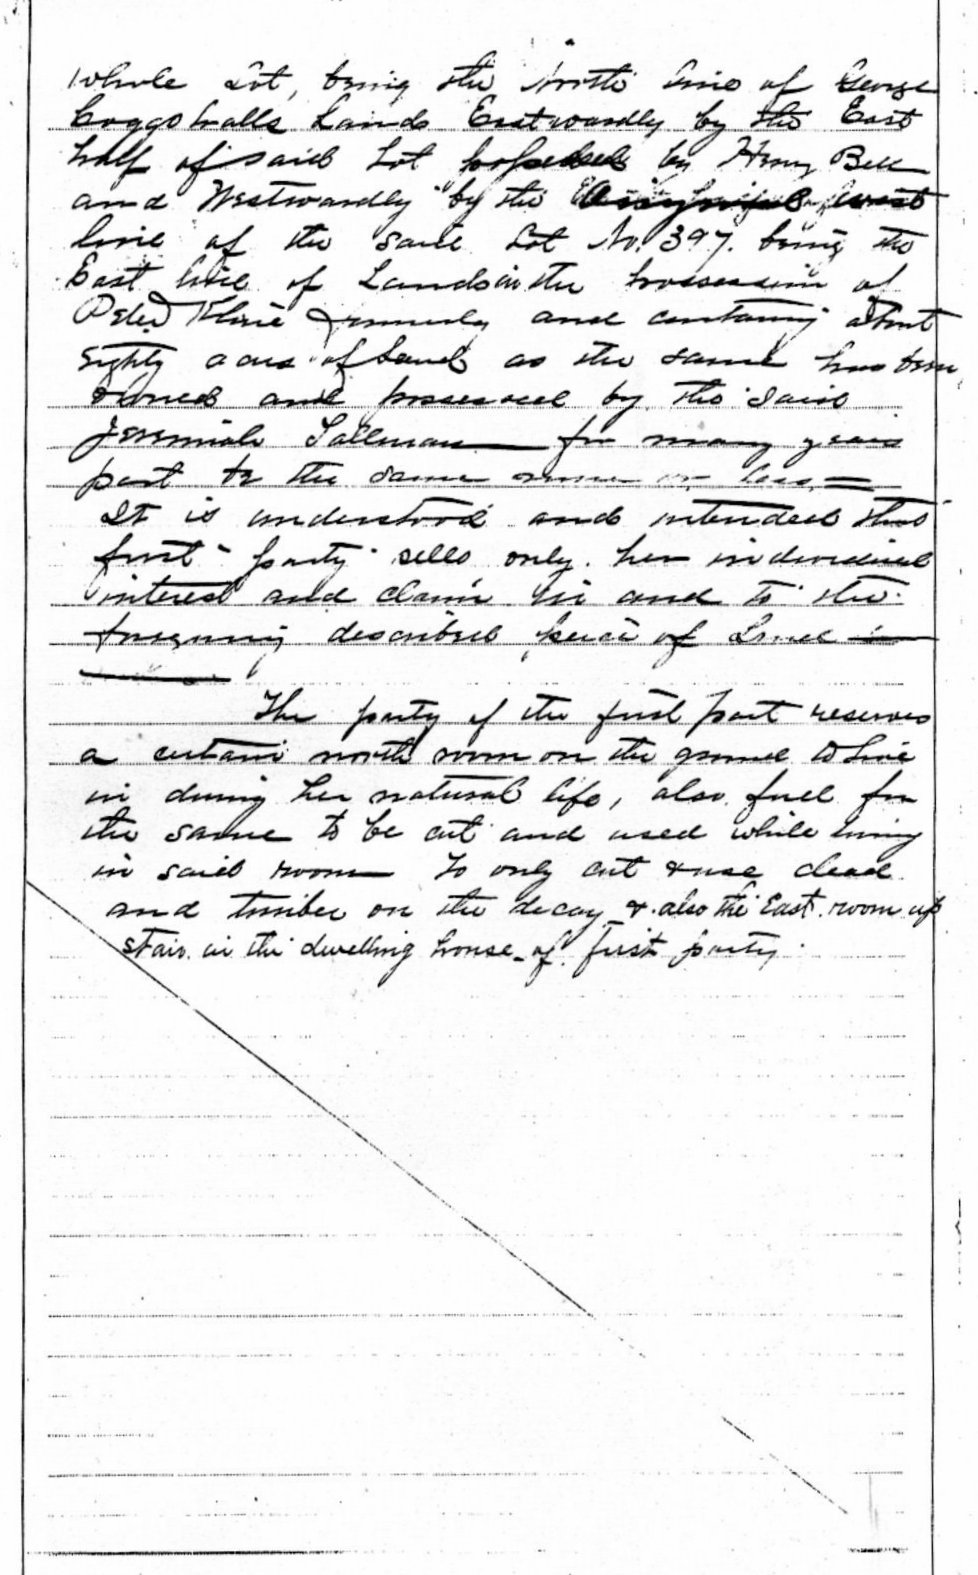 whole Lot, being the North line of George
Coggshalls Lands Eastwardly by the East
half of said Lot possessed by Henry Bell
and Westwardly by the west
line of the said Lot No. 397. being the
East line of Lands in the possession of
Peter Kline formerly and containing about
Eighty acres of Land as the same has been
owned and possessed by the said
Jeremiah Tallman for many years
past be the same more or less
It is understood and intended that
first party sells only her individual
interest and claim in and to the
foregoing described piece of Land
The party of the first part reserves
a certain north room on the ground to live
in during her natural life, also fuel for
the same to be cut and used while living
in said room to only cut & use dead
and timber on the decay & also the East room up
stairs in the dwelling house of first party.